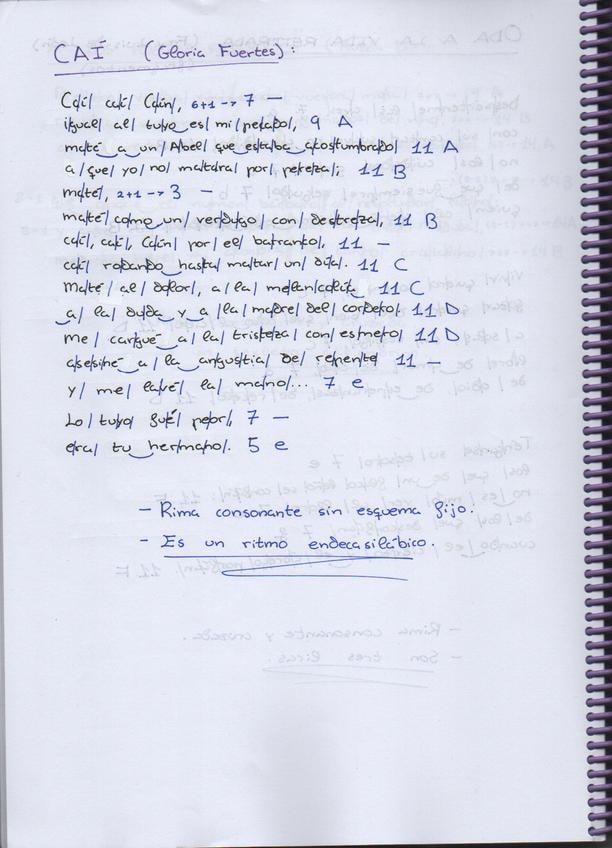 CAÍ (Gloria Fuertes):
Caí/ caí/ Caín/, 6+1 -> 7 —
igual/ al/ tuyo/ es/ mi/ pe/cado/, 9 A
maté a un/ Abel que estaba acostumbrado 11 A
a/ que/ yo/ no/ matara/ por/ pereza/; 11 B
maté/, 2+1 -> 3 —
maté/ como un/ verdugo/ con/ destreza/, 11 B
caí/, caí/, Caín/ por/ el/ barranco/, 11 —
caí/ robando hasta/ matar/ un/ día/. 11 C
Maté/ al/ dolor/, a/ la/ melancolía 11 C
a/ la/ duda y a/ la/ madre/ del/ cordero/ 11 D
me/ cargué a/ la/ tristeza/ con/ esmero/ 11 D
asesiné a/ la angustia/ de/ repente/ 11 —
y/ me/ lavé/ la/ mano/... 7 e
Lo/ tuyo/ fué/ peor/, 7 —
era/ tu hermano/. 5 e
- Rima consonante sin esquema fijo.
- Es un ritmo endecasilábico.